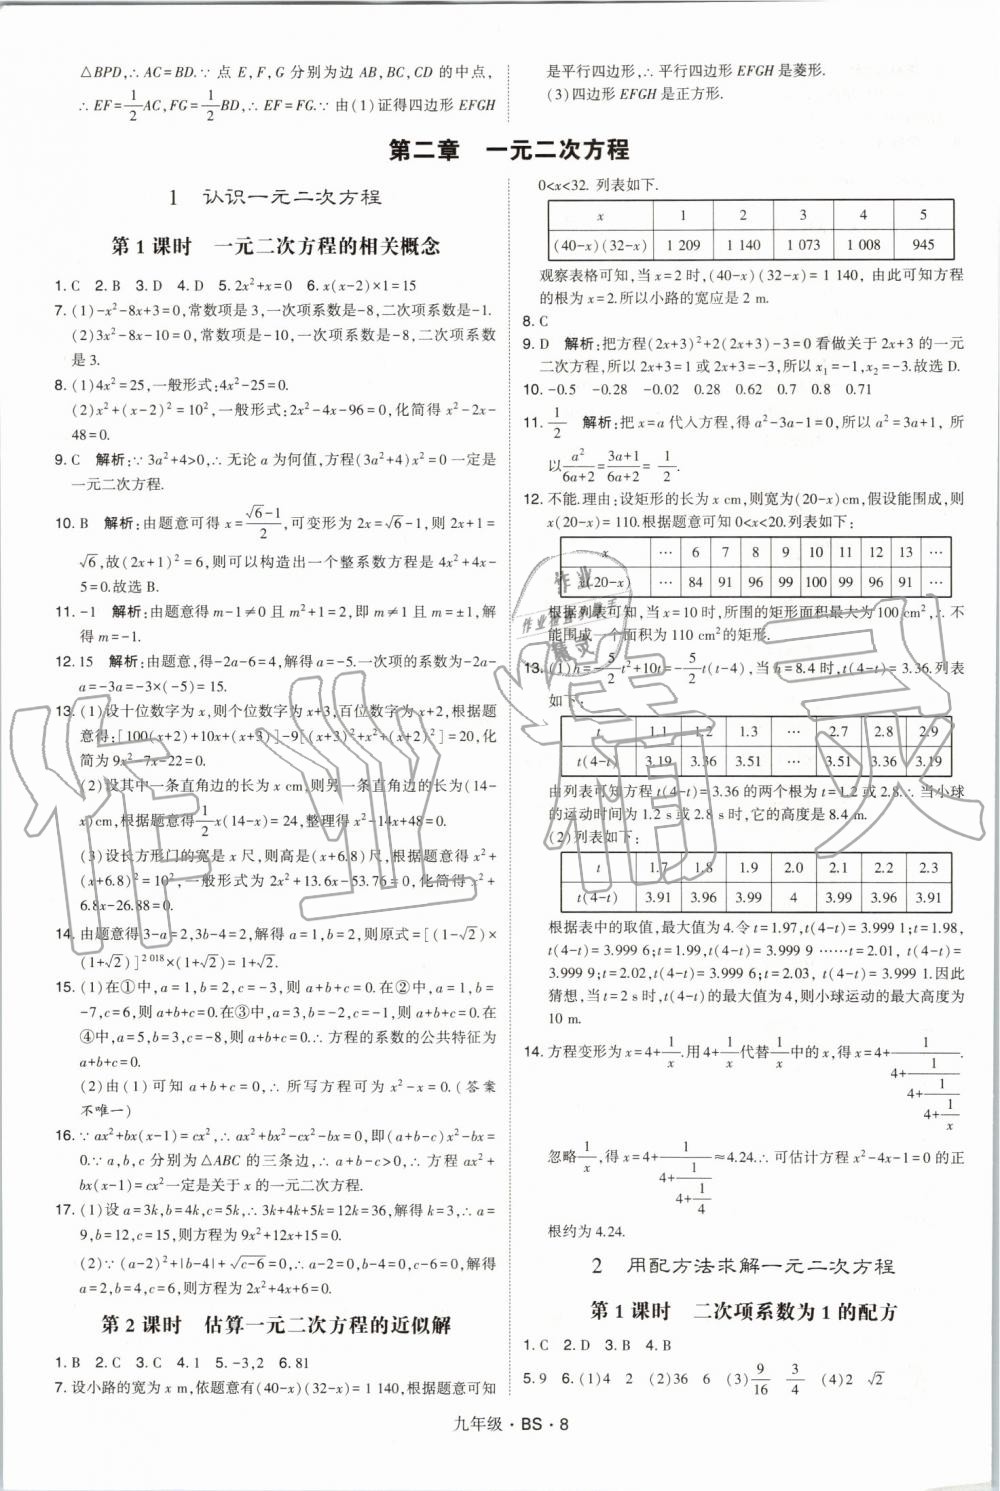 △BPD,∴AC=BD.∵点E,F,G分别为边AB,BC,CD的中点,
∴EF=1/2AC,FG=1/2BD,∴EF=FG.∵由(1)证得四边形EFGH
是平行四边形,∴平行四边形EFGH是菱形.
(3)四边形EFGH是正方形.
第二章 一元二次方程
1 认识一元二次方程
第1课时 一元二次方程的相关概念
1. C 2. B 3. D 4. D 5. 2x²+x=0 6. x(x-2)×1=15
7. (1)-x²-8x+3=0,常数项是3,一次项系数是-8,二次项系数是-1.
(2)3x²-8x-10=0,常数项是-10,一次项系数是-8,二次项系数
是3.
8. (1)4x²=25,一般形式:4x²-25=0.
(2)x²+(x-2)²=10²,一般形式:2x²-4x-96=0,化简得x²-2x-
48=0.
9. C 解析:∵3a²+4>0,∴无论a为何值,方程(3a²+4)x²=0一定是
一元二次方程.
10. B 解析:由题意可得x=(√6-1)/2,可变形为2x=√6-1,则2x+1=
√6,故(2x+1)²=6,则可以构造出一个整系数方程是4x²+4x-
5=0.故选B.
11. -1 解析:由题意得m-1≠0且m²+1=2,即m≠1且m=±1,解
得m=-1.
12. 15 解析:由题意,得-2a-6=4,解得a=-5.一次项的系数为-2a-
a=-3a=-3×(-5)=15.
13. (1)设十位数字为x,则个位数字为x+3,百位数字为x+2,根据题
意得:[100(x+2)+10x+(x+3)]-9[(x+3)²+x²+(x+2)²]=20,化
简为9x²-7x-22=0.
(2)设其中一条直角边的长为x cm,则另一条直角边的长为(14-
x)cm,根据题意得1/2x(14-x)=24,整理得x²-14x+48=0.
(3)设长方形门的宽是x尺,则高是(x+6.8)尺,根据题意得x²+
(x+6.8)²=10²,一般形式为2x²+13.6x-53.76=0,化简得x²+
6.8x-26.88=0.
14. 由题意得3-a=2,3b-4=2,解得a=1,b=2,则原式=[(1-√2)×
(1+√2)]²⁰¹⁸×(1+√2)=1+√2.
15. (1)在①中,a=1,b=2,c=-3,则a+b+c=0.在②中,a=1,b=
-7,c=6,则a+b+c=0.在③中,a=3,b=-2,c=-1,则a+b+c=0.在
④中,a=5,b=3,c=-8,则a+b+c=0.∴方程的系数的公共特征为
a+b+c=0.
(2)由(1)可知a+b+c=0,∴所写方程可为x²-x=0.(答案
不唯一)
16. ∵ax²+bx(x-1)=cx²,∴ax²+bx²-cx²-bx=0,即(a+b-c)x²-bx=
0.∵a,b,c分别为△ABC的三条边,∴a+b-c>0,∴方程ax²+
bx(x-1)=cx²一定是关于x的一元二次方程.
17. (1)设a=3k,b=4k,c=5k,∴3k+4k+5k=12k=36,解得k=3,∴a=
9,b=12,c=15,则方程为9x²+12x+15=0.
(2)∵(a-2)²+|b-4|+√(c-6)=0,∴a-2=0,b-4=0,c-6=0,解得
a=2,b=4,c=6,则方程为2x²+4x+6=0.
第2课时 估算一元二次方程的近似解
1. B 2. C 3. C 4. 1 5. -3,2 6. 81
7. 设小路的宽为x m,依题意有(40-x)(32-x)=1 140,根据题意可知
0<x<32. 列表如下.
x 1 2 3 4 5
(40-x)(32-x) 1 209 1 140 1 073 1 008 945
观察表格可知,当x=2时,(40-x)(32-x)=1 140,由此可知方程
的根为x=2.所以小路的宽应是2 m.
8. C
9. D 解析:把方程(2x+3)²+2(2x+3)-3=0看做关于2x+3的一元
二次方程,所以2x+3=1或2x+3=-3,所以x₁=-1,x₂=-3.故选D.
10. -0.5 -0.28 -0.02 0.28 0.62 0.7 0.8 0.71
11. 1/2 解析:把x=a代入方程,得a²-3a-1=0,所以a²=3a+1,所
以a²/(6a+2)=(3a+1)/(6a+2)=1/2.
12. 不能.理由:设矩形的长为x cm,则宽为(20-x)cm,假设能围成,则
x(20-x)=110.根据题意可知0<x<20.列表如下:
x … 6 7 8 9 10 11 12 13 …
x(20-x) … 84 91 96 99 100 99 96 91 …
根据列表可知,当x=10时,所围的矩形面积最大为100 cm²,∴不
能围成一个面积为110 cm²的矩形.
13. (1)h=-5/2t²+10t=-5/2t(t-4),当h=8.4时,t(4-t)=3.36.列表
如下:
t 1.1 1.2 1.3 … 2.7 2.8 2.9
t(4-t) 3.19 3.36 3.51 … 3.51 3.36 3.19
由列表可知方程t(4-t)=3.36的两个根为t=1.2或2.8.∴当小球
的运动时间为1.2 s或2.8 s时,它的高度是8.4 m.
(2)列表如下:
t 1.7 1.8 1.9 2.0 2.1 2.2 2.3
t(4-t) 3.91 3.96 3.99 4 3.99 3.96 3.91
根据表中的取值,最大值为4.令t=1.97,t(4-t)=3.999 1;t=1.98,
t(4-t)=3.999 6;t=1.99,t(4-t)=3.999 9……t=2.01, t(4-t)=
3.999 9;t=2.02,t(4-t)=3.999 6;t=2.03, t(4-t)=3.999 1.因此
猜想,当t=2 s时,t(4-t)的最大值为4,则小球运动的最大高度为
10 m.
14. 方程变形为x=4+1/x.用4+1/x代替1/x中的x,得x=4+1/(4+1/(4+1/(4+1/x))).
忽略1/x,得x=4+1/(4+1/(4+1/4))≈4.24.∴可估计方程x²-4x-1=0的正
根约为4.24.
2 用配方法求解一元二次方程
第1课时 二次项系数为1的配方
1. C 2. D 3. B 4. B
5. 9 6. (1)4 2 (2)36 6 (3)9/16 3/4 (4)2 √2
九年级·BS·8
作业
作业检查小助手
精灵
作业精灵